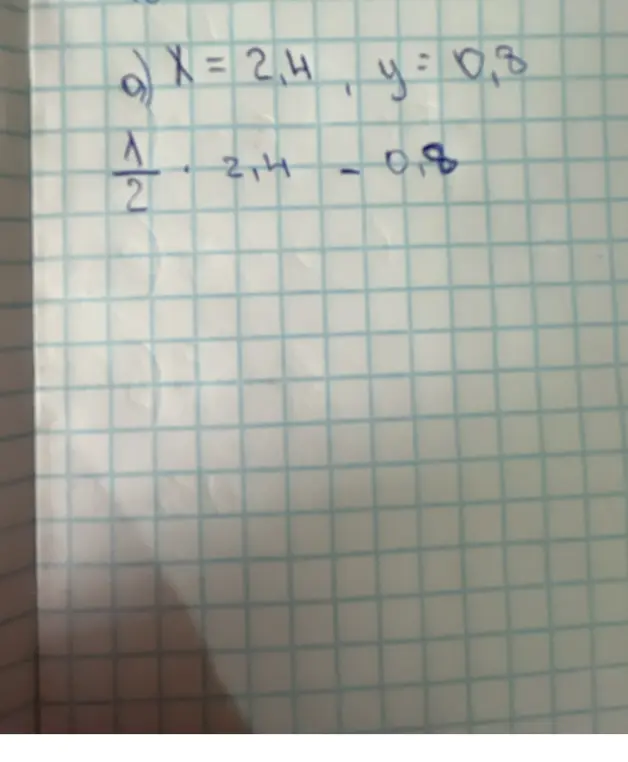 а) x = 2,4 , y = 0,8
1/2 · 2,4 - 0,8